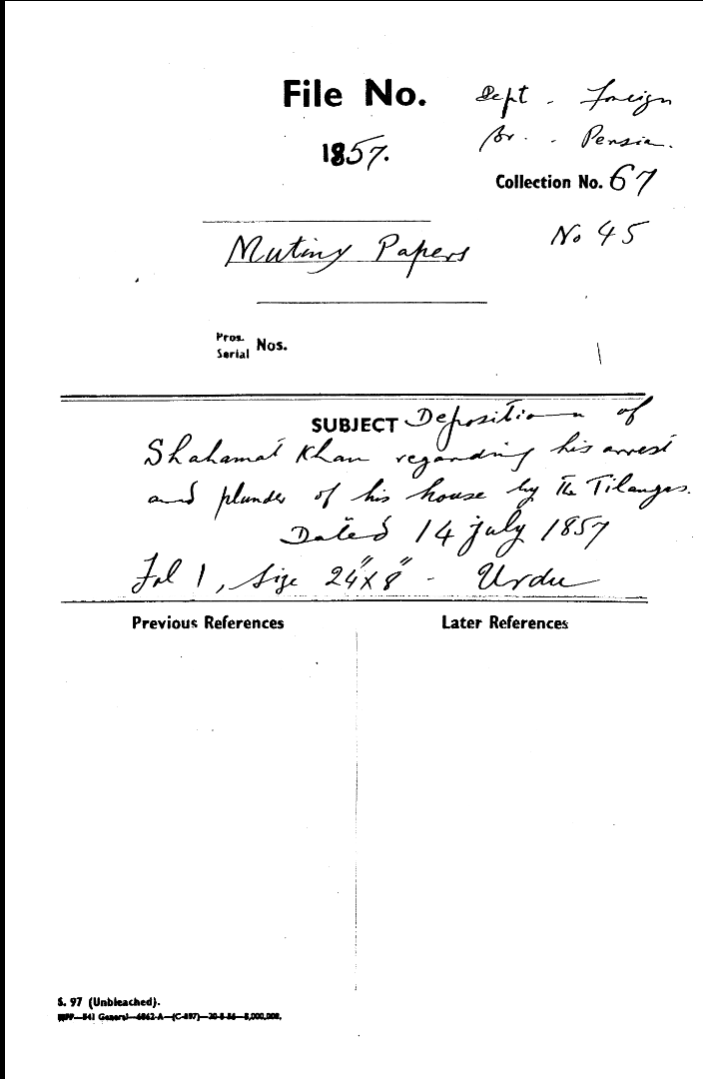 File No.
Dept - Foreign
1857.
Br. - Persian.
Collection No. 67
Mutiny Papers
No 45
Pros. Nos.
Serial
SUBJECT Deposition of
Shahamat Khan regarding his arrest
and plunder of his house by the Tilangas.
Dated 14 july 1857
Fol 1, Size 24"x8" - Urdu
Previous References
Later References
S. 97 (Unbleached).
541 General—6862-A—(C-897)—20-8-56—5,000,000.